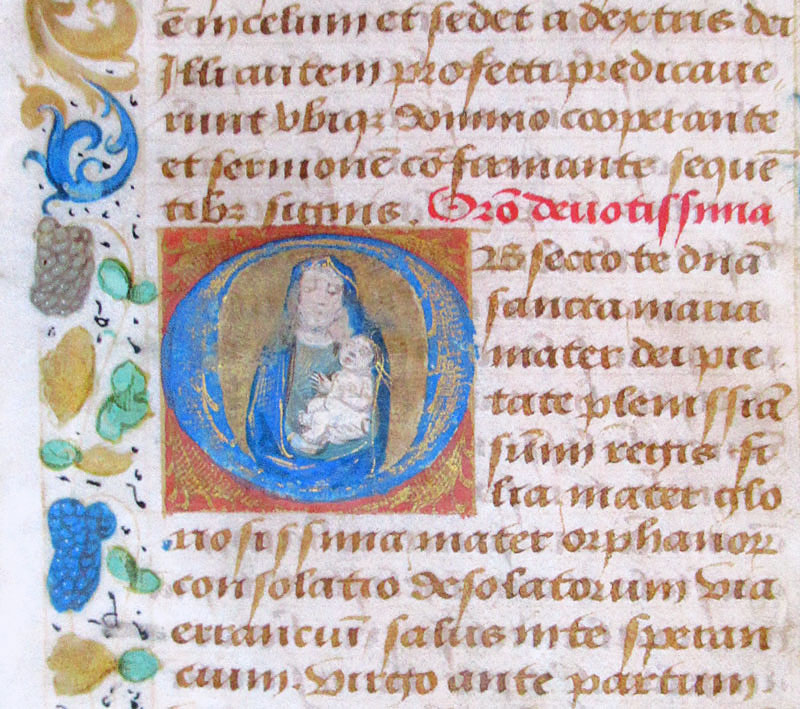 ē in celum et sedet a dextris dei
Illi autem profecti predicaue
runt vbiqꝫ domino cooperante
et sermonē cōfirmante sequē
tibꝫ signis. Orō deuotissima
Obsecro te dnā
sancta maria
mater dei pie
tate plenissiā
sūmi regis fi
lia mater glo
riosissima mater orphanoꝝ
consolatio desolatorum via
errancuī salus in te speran
cium. Virgo ante partum